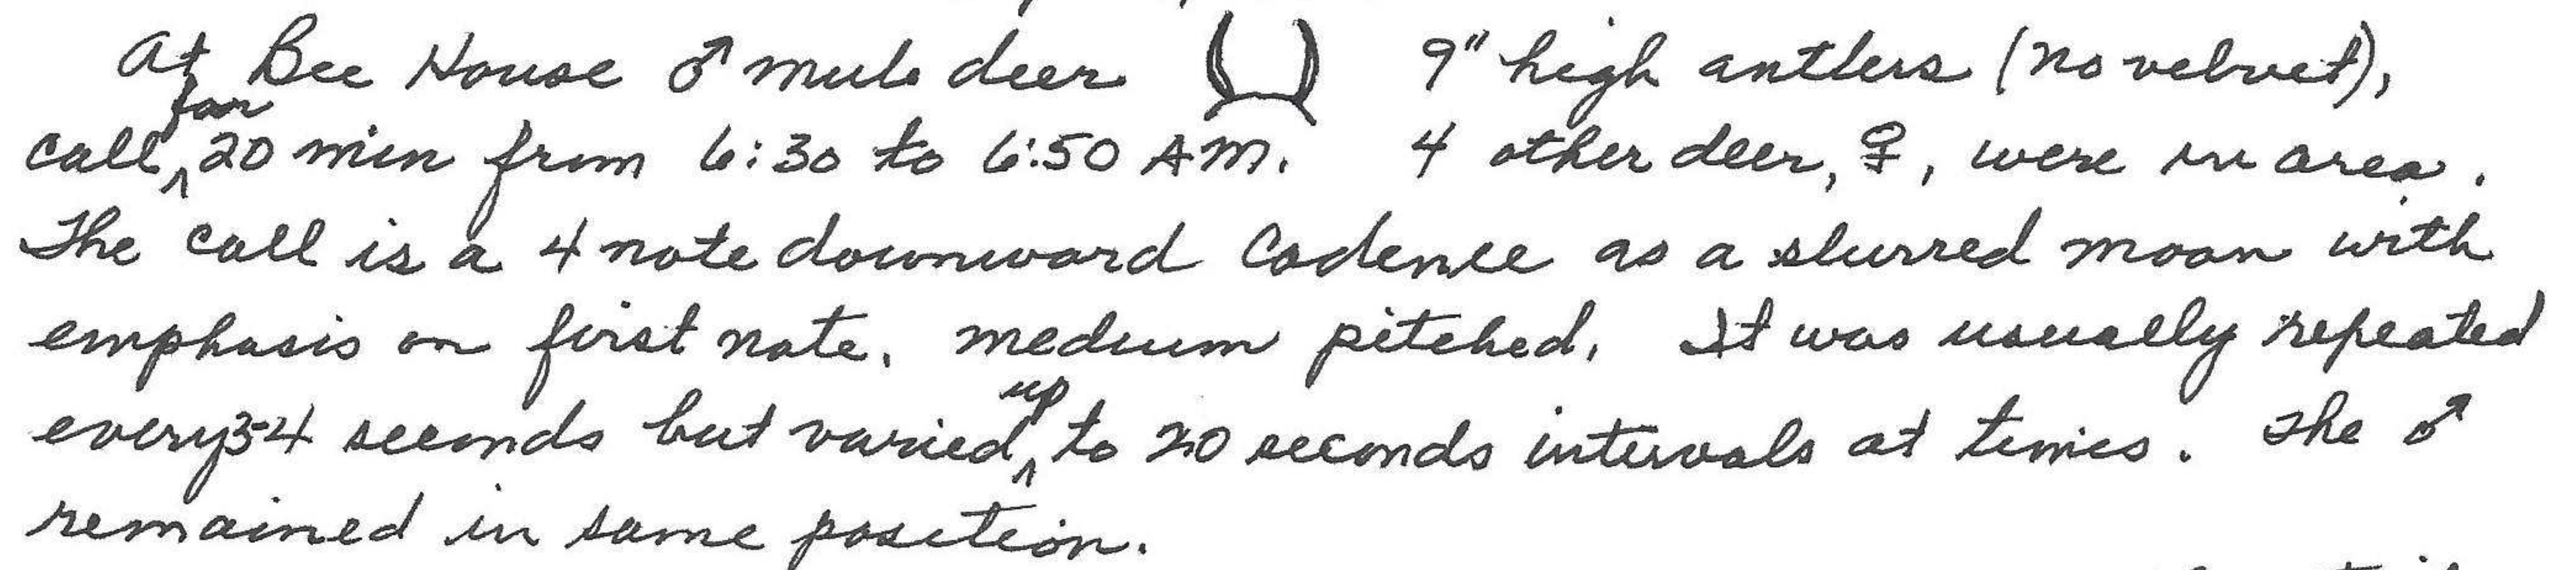 At Bee House ♂ mule deer 9" high antlers (no velvet),
call for 20 min from 6:30 to 6:50 AM. 4 other deer, ♀, were in area.
The call is a 4 note downward cadence as a slurred moan with
emphasis on first note. medium pitched. It was usually repeated
every 3-4 seconds but varied up to 20 seconds intervals at times. The ♂
remained in same position.